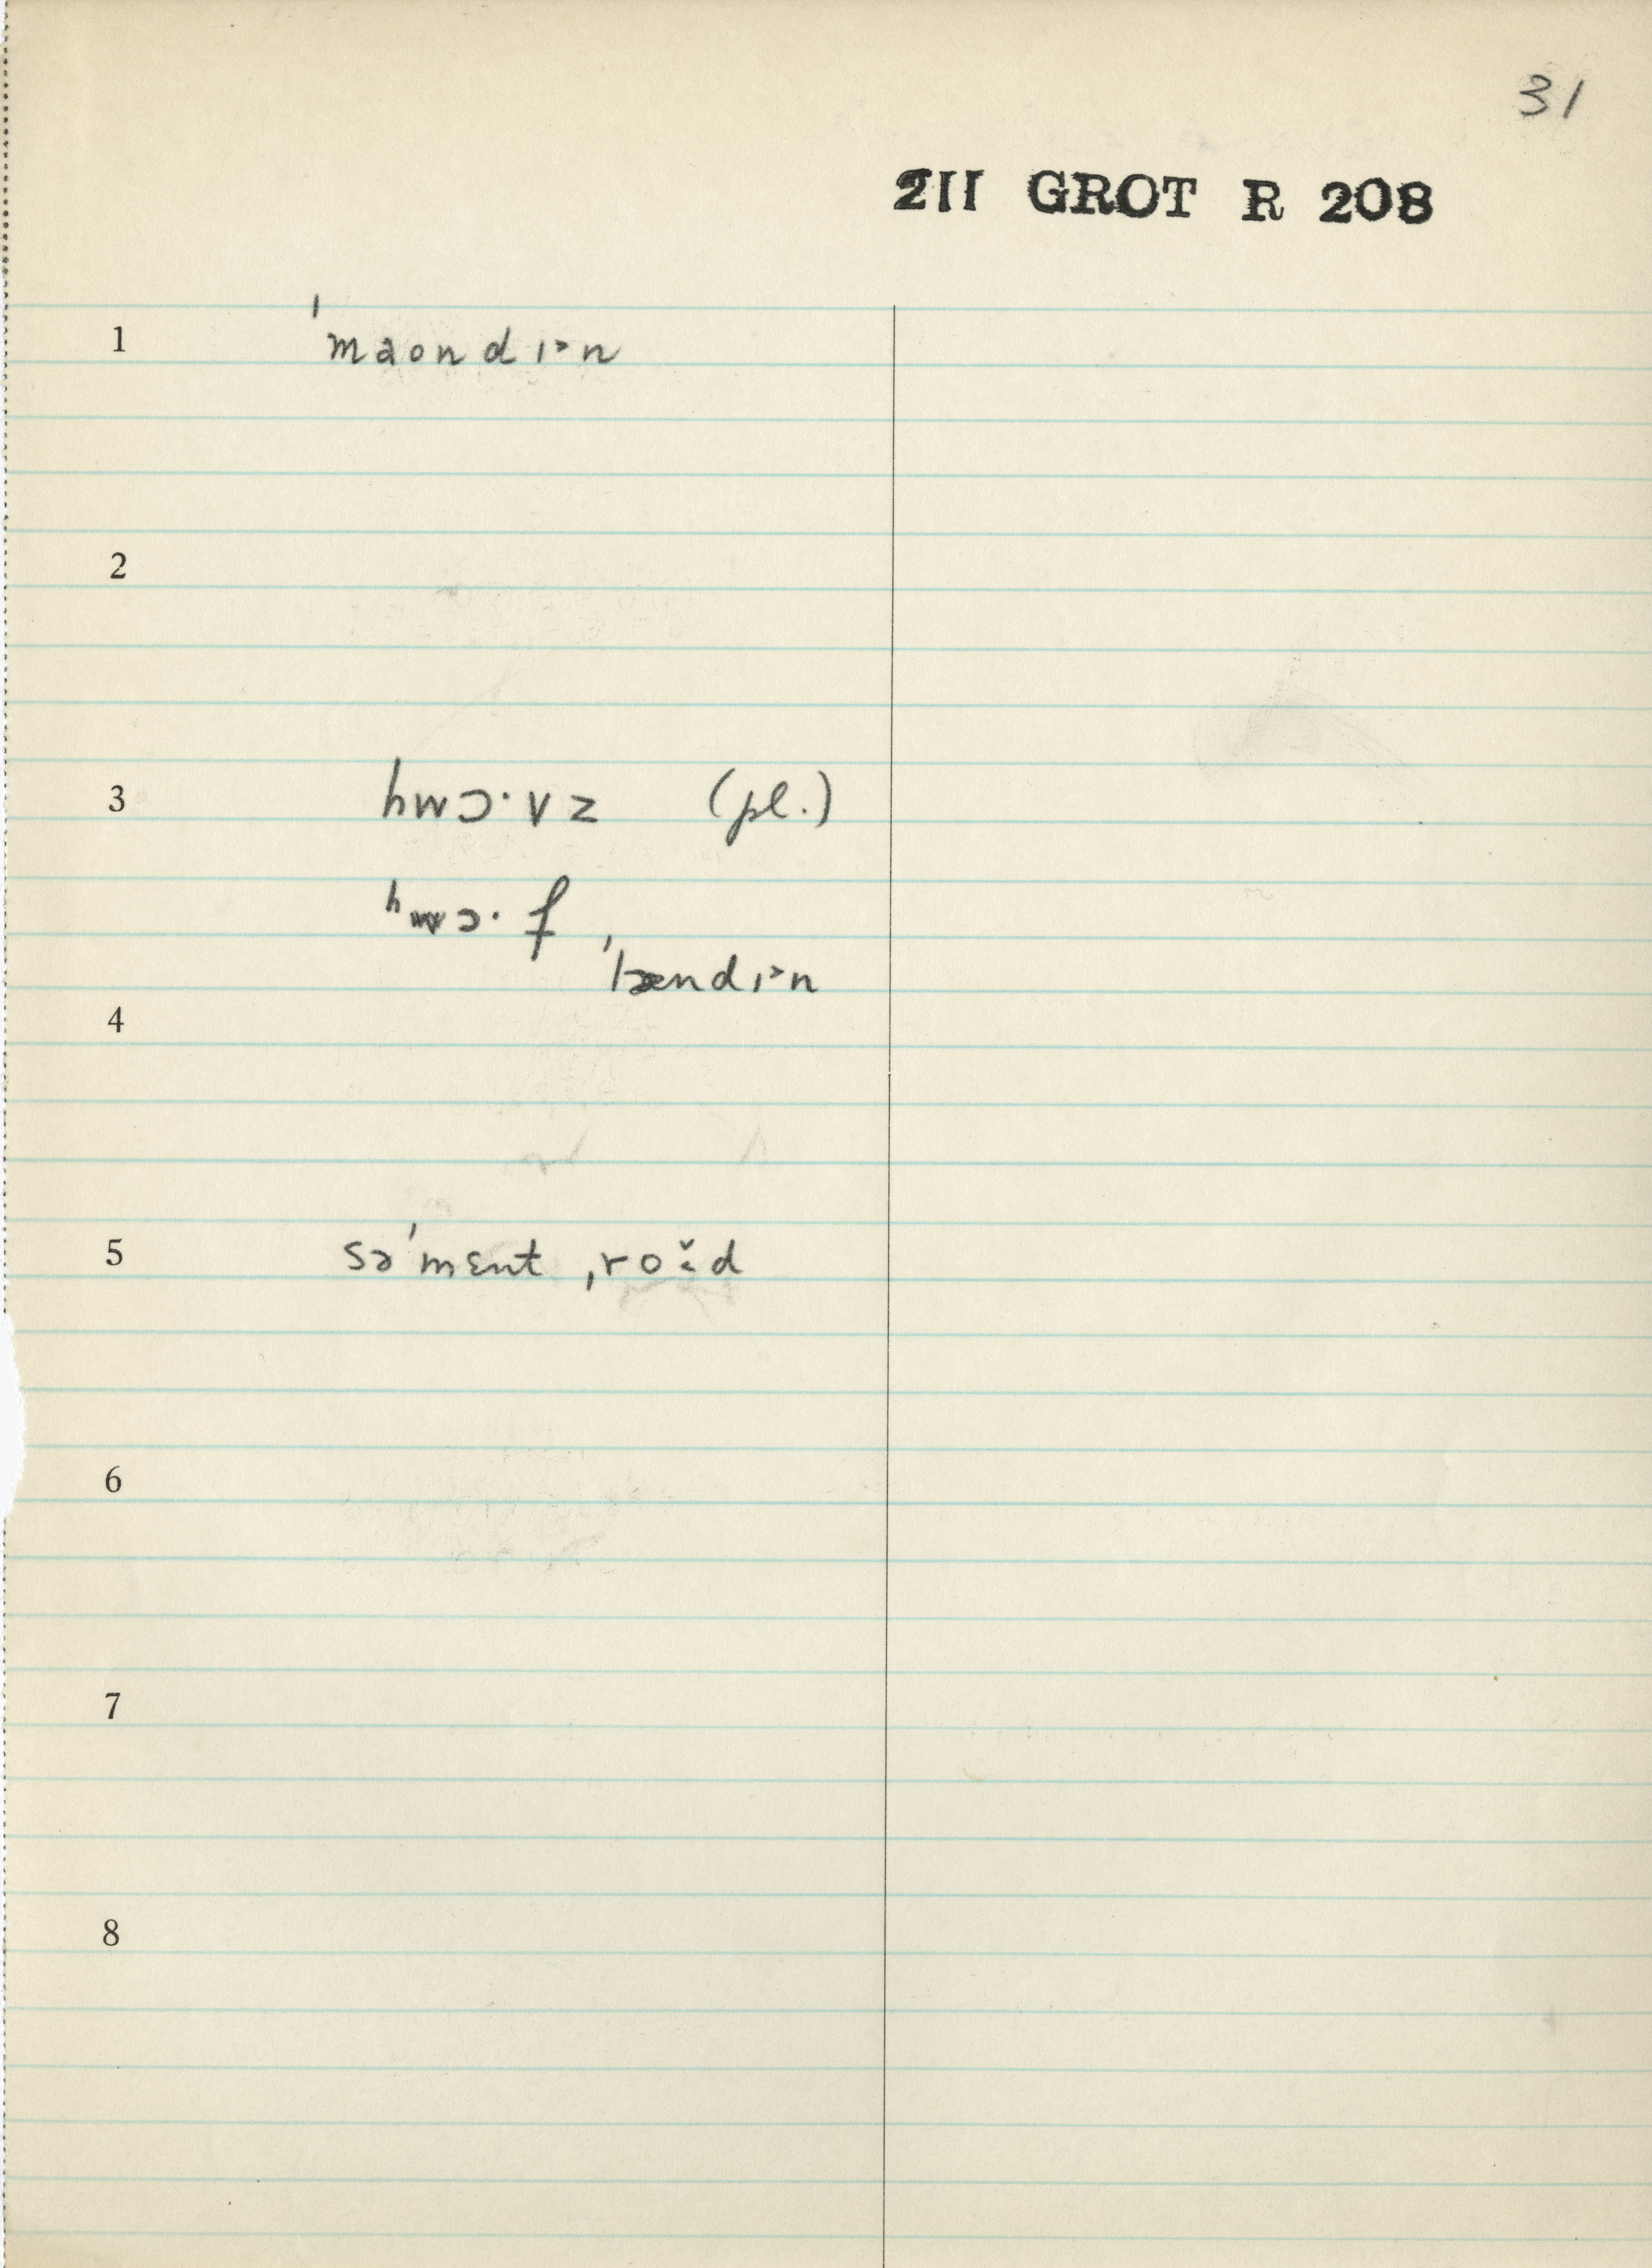 31
211 GROT R 208
1 ˈmaondɪᵊn
2
3 hwɔ·vz (pl.)
hwɔ·f ˈlændɪᵊn
4
5 səˈmɛnt ˌroɪ̆d
6
7
8